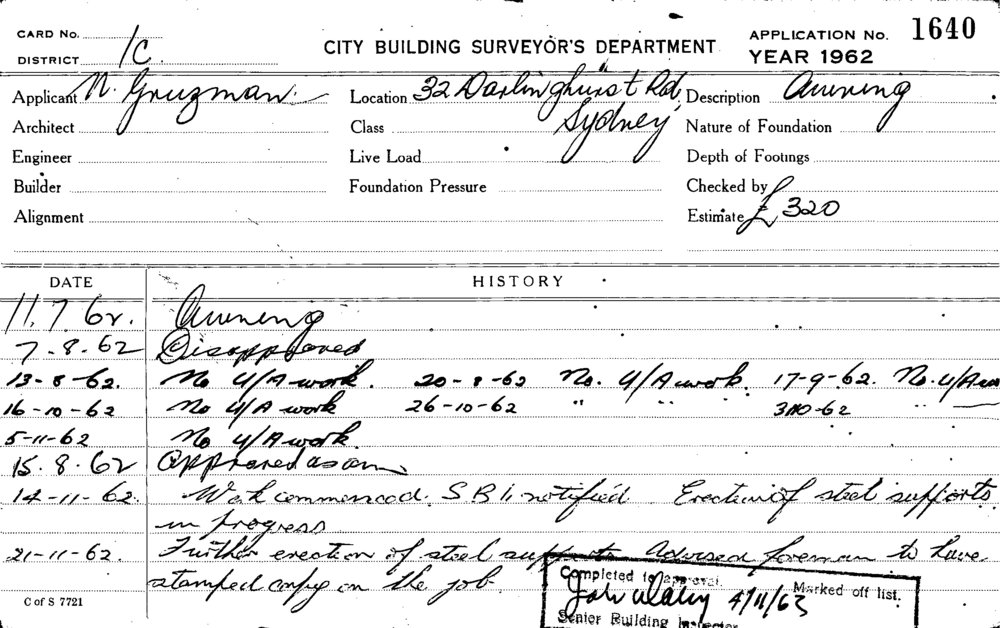 CARD No.
DISTRICT 1C.
CITY BUILDING SURVEYOR'S DEPARTMENT
APPLICATION No. 1640
YEAR 1962
Applicant N. Gruzman Location 32 Darlinghurst Rd, Description Awning
Architect Class Sydney Nature of Foundation
Engineer Live Load Depth of Footings
Builder Foundation Pressure Checked by
Alignment Estimate £320
DATE HISTORY
11.7.62. Awning
7-8-62 Disapproved
13-8-62. No U/A work. 20-8-62 No. U/A work. 17-9-62. No. U/A
16-10-62 No U/A work 26-10-62 " " " 31-10-62 "
5-11-62 No U/A work.
15.8.62 Approved as am
14-11-62. Work commenced. S B I. notified Erection of steel supports
in progress
21-11-62. Further erection of steel supports. Advised foreman to have
stamped copy on the job
C of S 7721
Completed to approval. Marked off list.
4/11/63
Senior Building Inspector